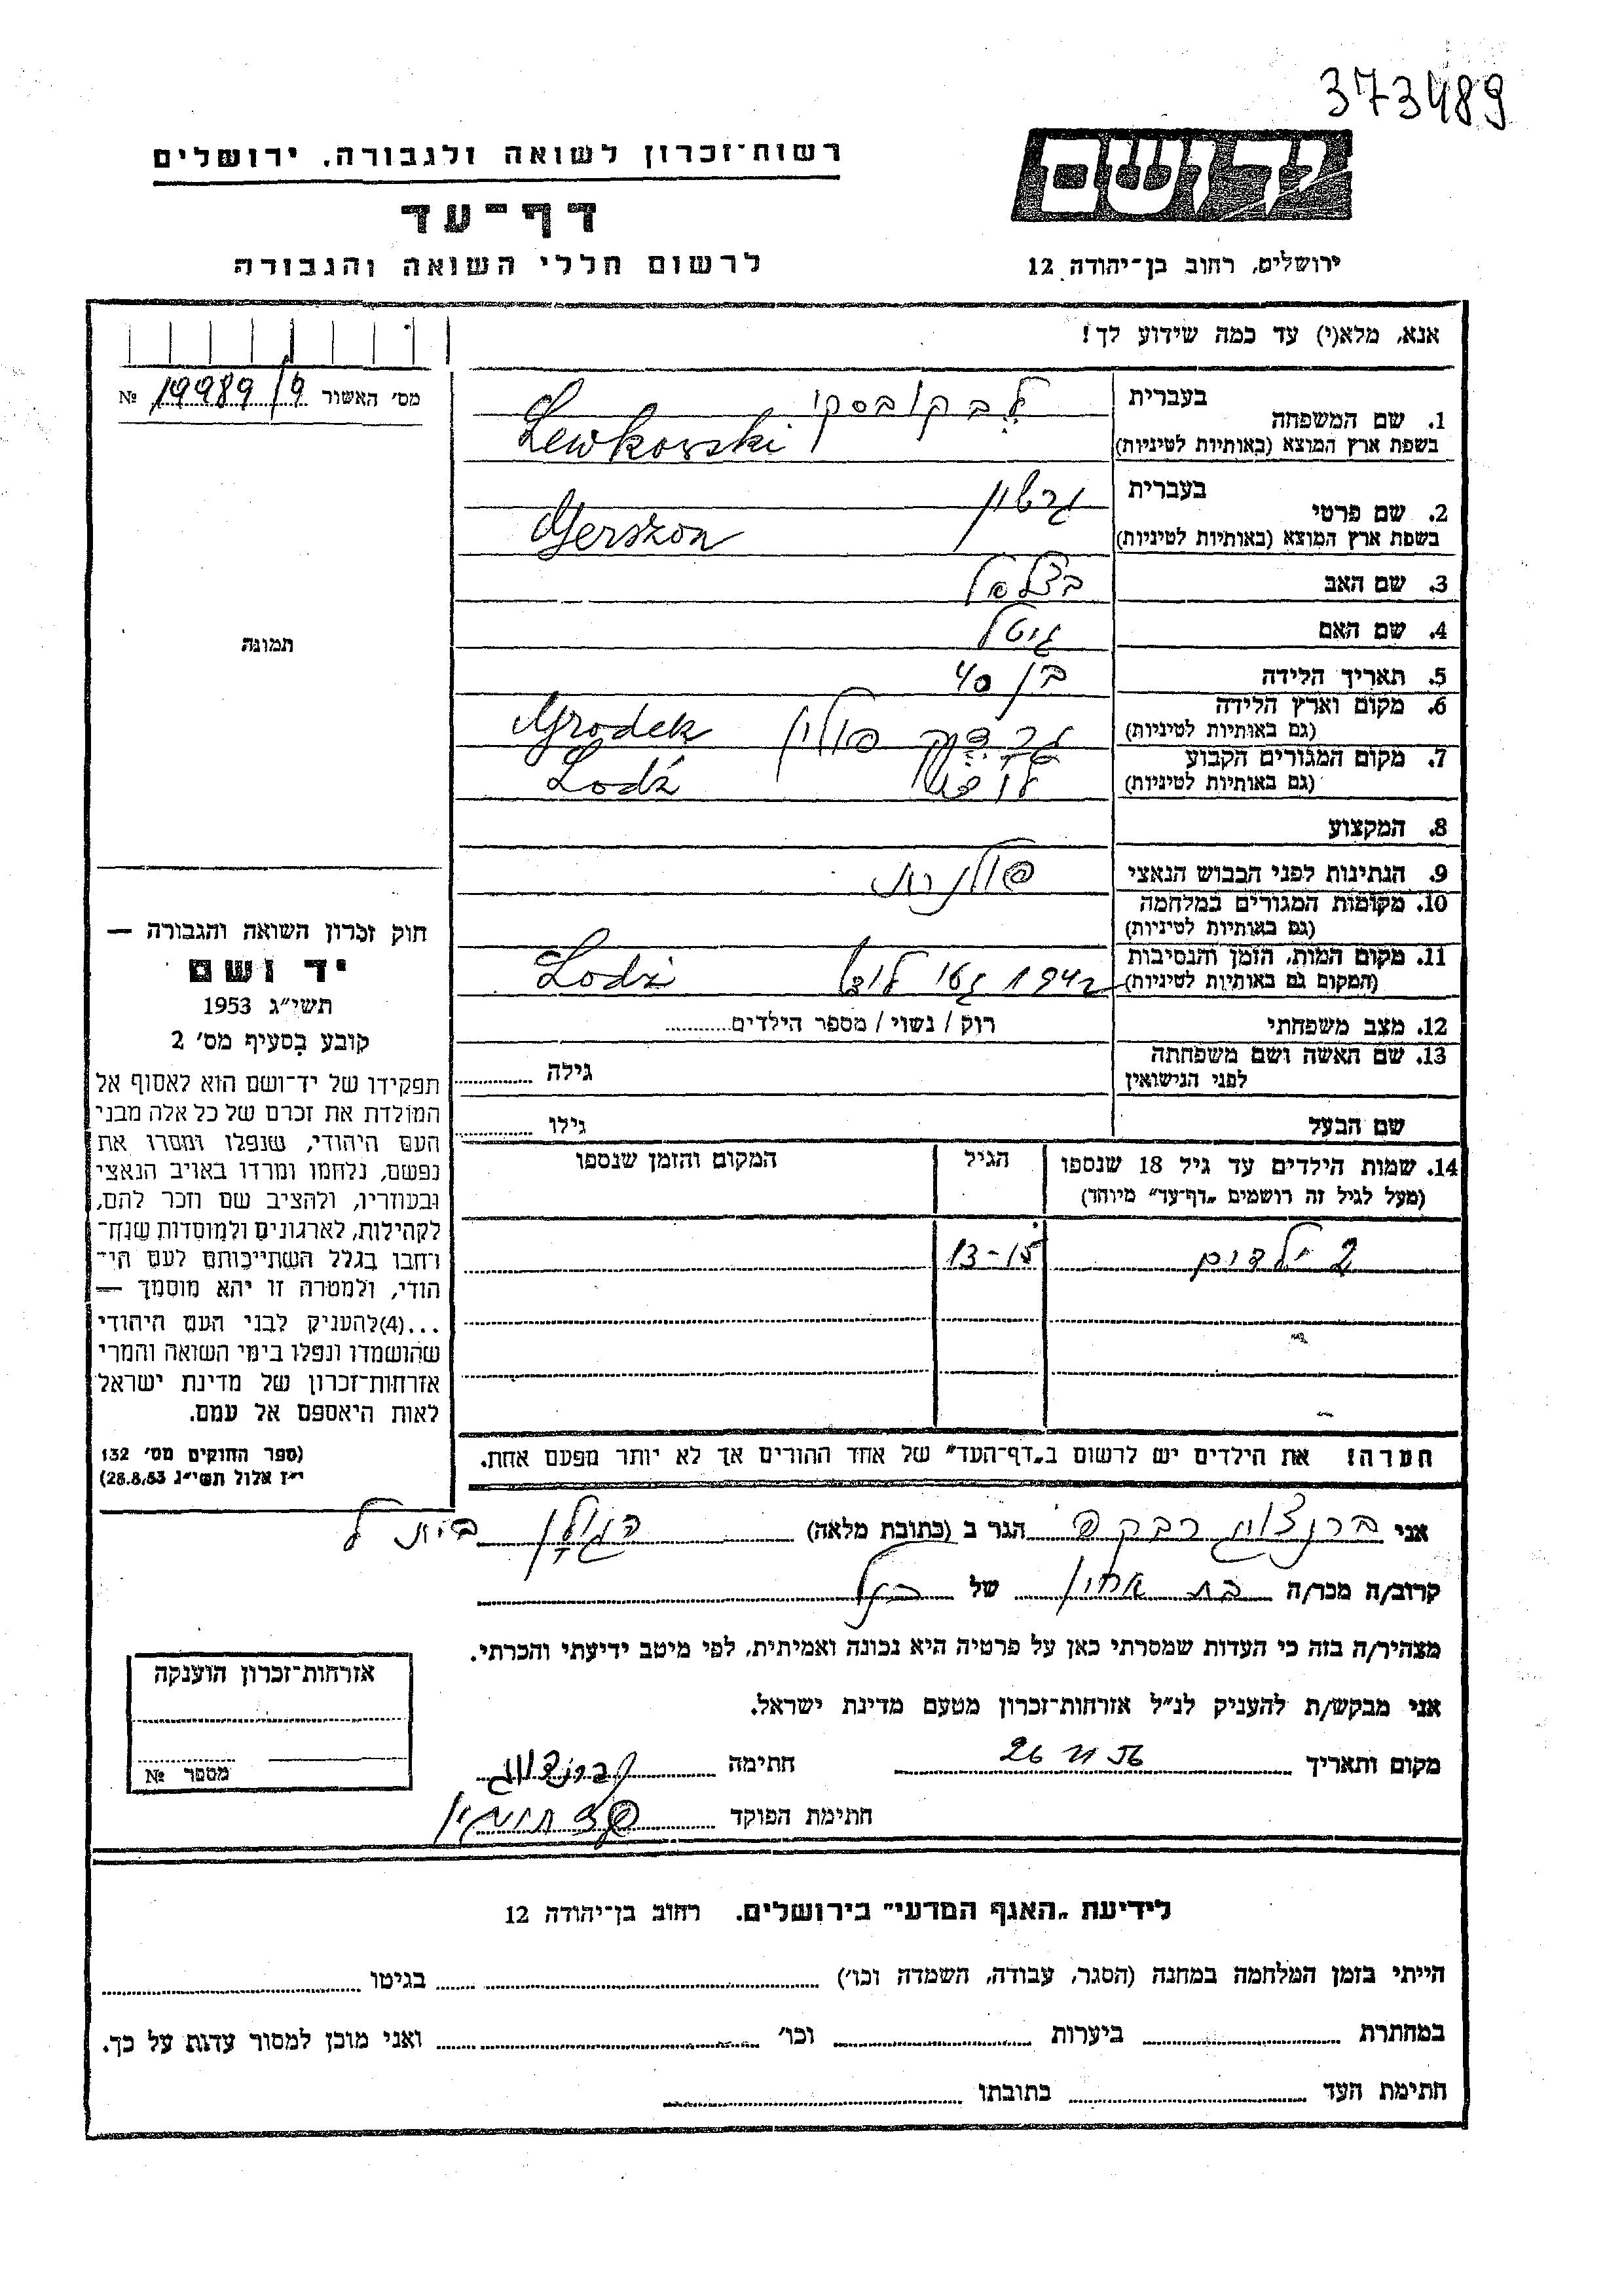 373489
רשות־זכרון לשואה ולגבורה. ירושלים
דף־עד
לרשום חללי השואה והגבורה
יד ושם
ירושלים, רחוב בן־יהודה 12
אנא, מלא(י) עד כמה שידוע לך!
מס׳ האשור 19989/9 №
תמונה
1. שם המשפחה בעברית לבקובסקי
בשפת ארץ המוצא (באותיות לטיניות) Lewkowski
2. שם פרטי בעברית גרשון
בשפת ארץ המוצא (באותיות לטיניות) Gerszon
3. שם האב בצלאל
4. שם האם גיטל
5. תאריך הלידה בן 40
6. מקום וארץ הלידה (גם באותיות לטיניות) גרודק פולין Grodek
7. מקום המגורים הקבוע (גם באותיות לטיניות) לודש Lodź
8. המקצוע
9. הנתינות לפני הכבוש הנאצי פולנית
10. מקומות המגורים במלחמה (גם באותיות לטיניות)
11. מקום המות, הזמן והנסיבות (המקום גם באותיות לטיניות) 1942 גטו לודז Lodź
12. מצב משפחתי רוק / נשוי / מספר הילדים
13. שם האשה ושם משפחתה לפני הנישואין גילה
שם הבעל גילו
14. שמות הילדים עד גיל 18 שנספו הגיל המקום והזמן שנספו
(מעל לגיל זה רושמים „דף־עד״ מיוחד)
2 ילדים 13-15
חוק זכרון השואה והגבורה —
יד ושם
תשי״ג 1953
קובע בסעיף מס׳ 2
תפקידו של יד־ושם הוא לאסוף אל
המולדת את זכרם של כל אלה מבני
העם היהודי, שנפלו ומסרו את
נפשם, נלחמו ומרדו באויב הנאצי
ובעוזריו, ולהציב שם וזכר להם,
לקהילות, לארגונים ולמוסדות שנח־
רחבו בגלל השתייכותם לעם הי־
הודי, ולמטרה זו יהא מוסמך —
...(4)להעניק לבני העם היהודי
שהושמדו ונפלו בימי השואה והמרי
אזרחות־זכרון של מדינת ישראל
לאות היאספם אל עמם.
(ספר החוקים מס׳ 132
י״ז אלול תשי״ג 28.8.53)
חערה! את הילדים יש לרשום ב„דף־העד״ של אחד ההורים אך לא יותר מפעם אחת.
אני ברנצוג רבקה הגר ב (כתובת מלאה)
קרוב/ה מכר/ה בת אחין של הנ״ל
מצהיר/ה בזה כי העדות שמסרתי כאן על פרטיה היא נכונה ואמיתית, לפי מיטב ידיעתי והכרתי.
אני מבקש/ת להעניק לנ״ל אזרחות־זכרון מטעם מדינת ישראל.
מקום ותאריך 26 VI 56 חתימה
חתימת הפוקד
אזרחות־זכרון הוענקה
מספר №
לידיעת „האגף המדעי״ בירושלים. רחוב בן־יהודה 12
הייתי בזמן המלחמה במחנה (הסגר, עבודה, השמדה וכו׳) בגיטו
במחתרת ביערות וכו׳ ואני מוכן למסור עדות על כך.
חתימת העד כתובתו